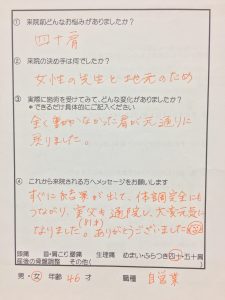 ① 来院前どんなお悩みがありましたか?
四十肩
② 来院の決め手は何でしたか?
女性の先生と地元のため
③ 実際に施術を受けてみて、どんな変化がありましたか?
*できるだけ具体的にご記入ください
全く動かなかった肩が元通りに
戻りました。
④ これから来院される方へメッセージをお願いします
すぐに効果が出て、体調安定にも
つながり、実父も通院し、大変元気に
(81才)
なりました。ありがとうございました
頭痛 首・肩こり 腰痛 生理痛 めまい・ふらつき 四十・五十肩
産後の骨盤調整 その他(
男・女 年齢 46才 職種 自営業